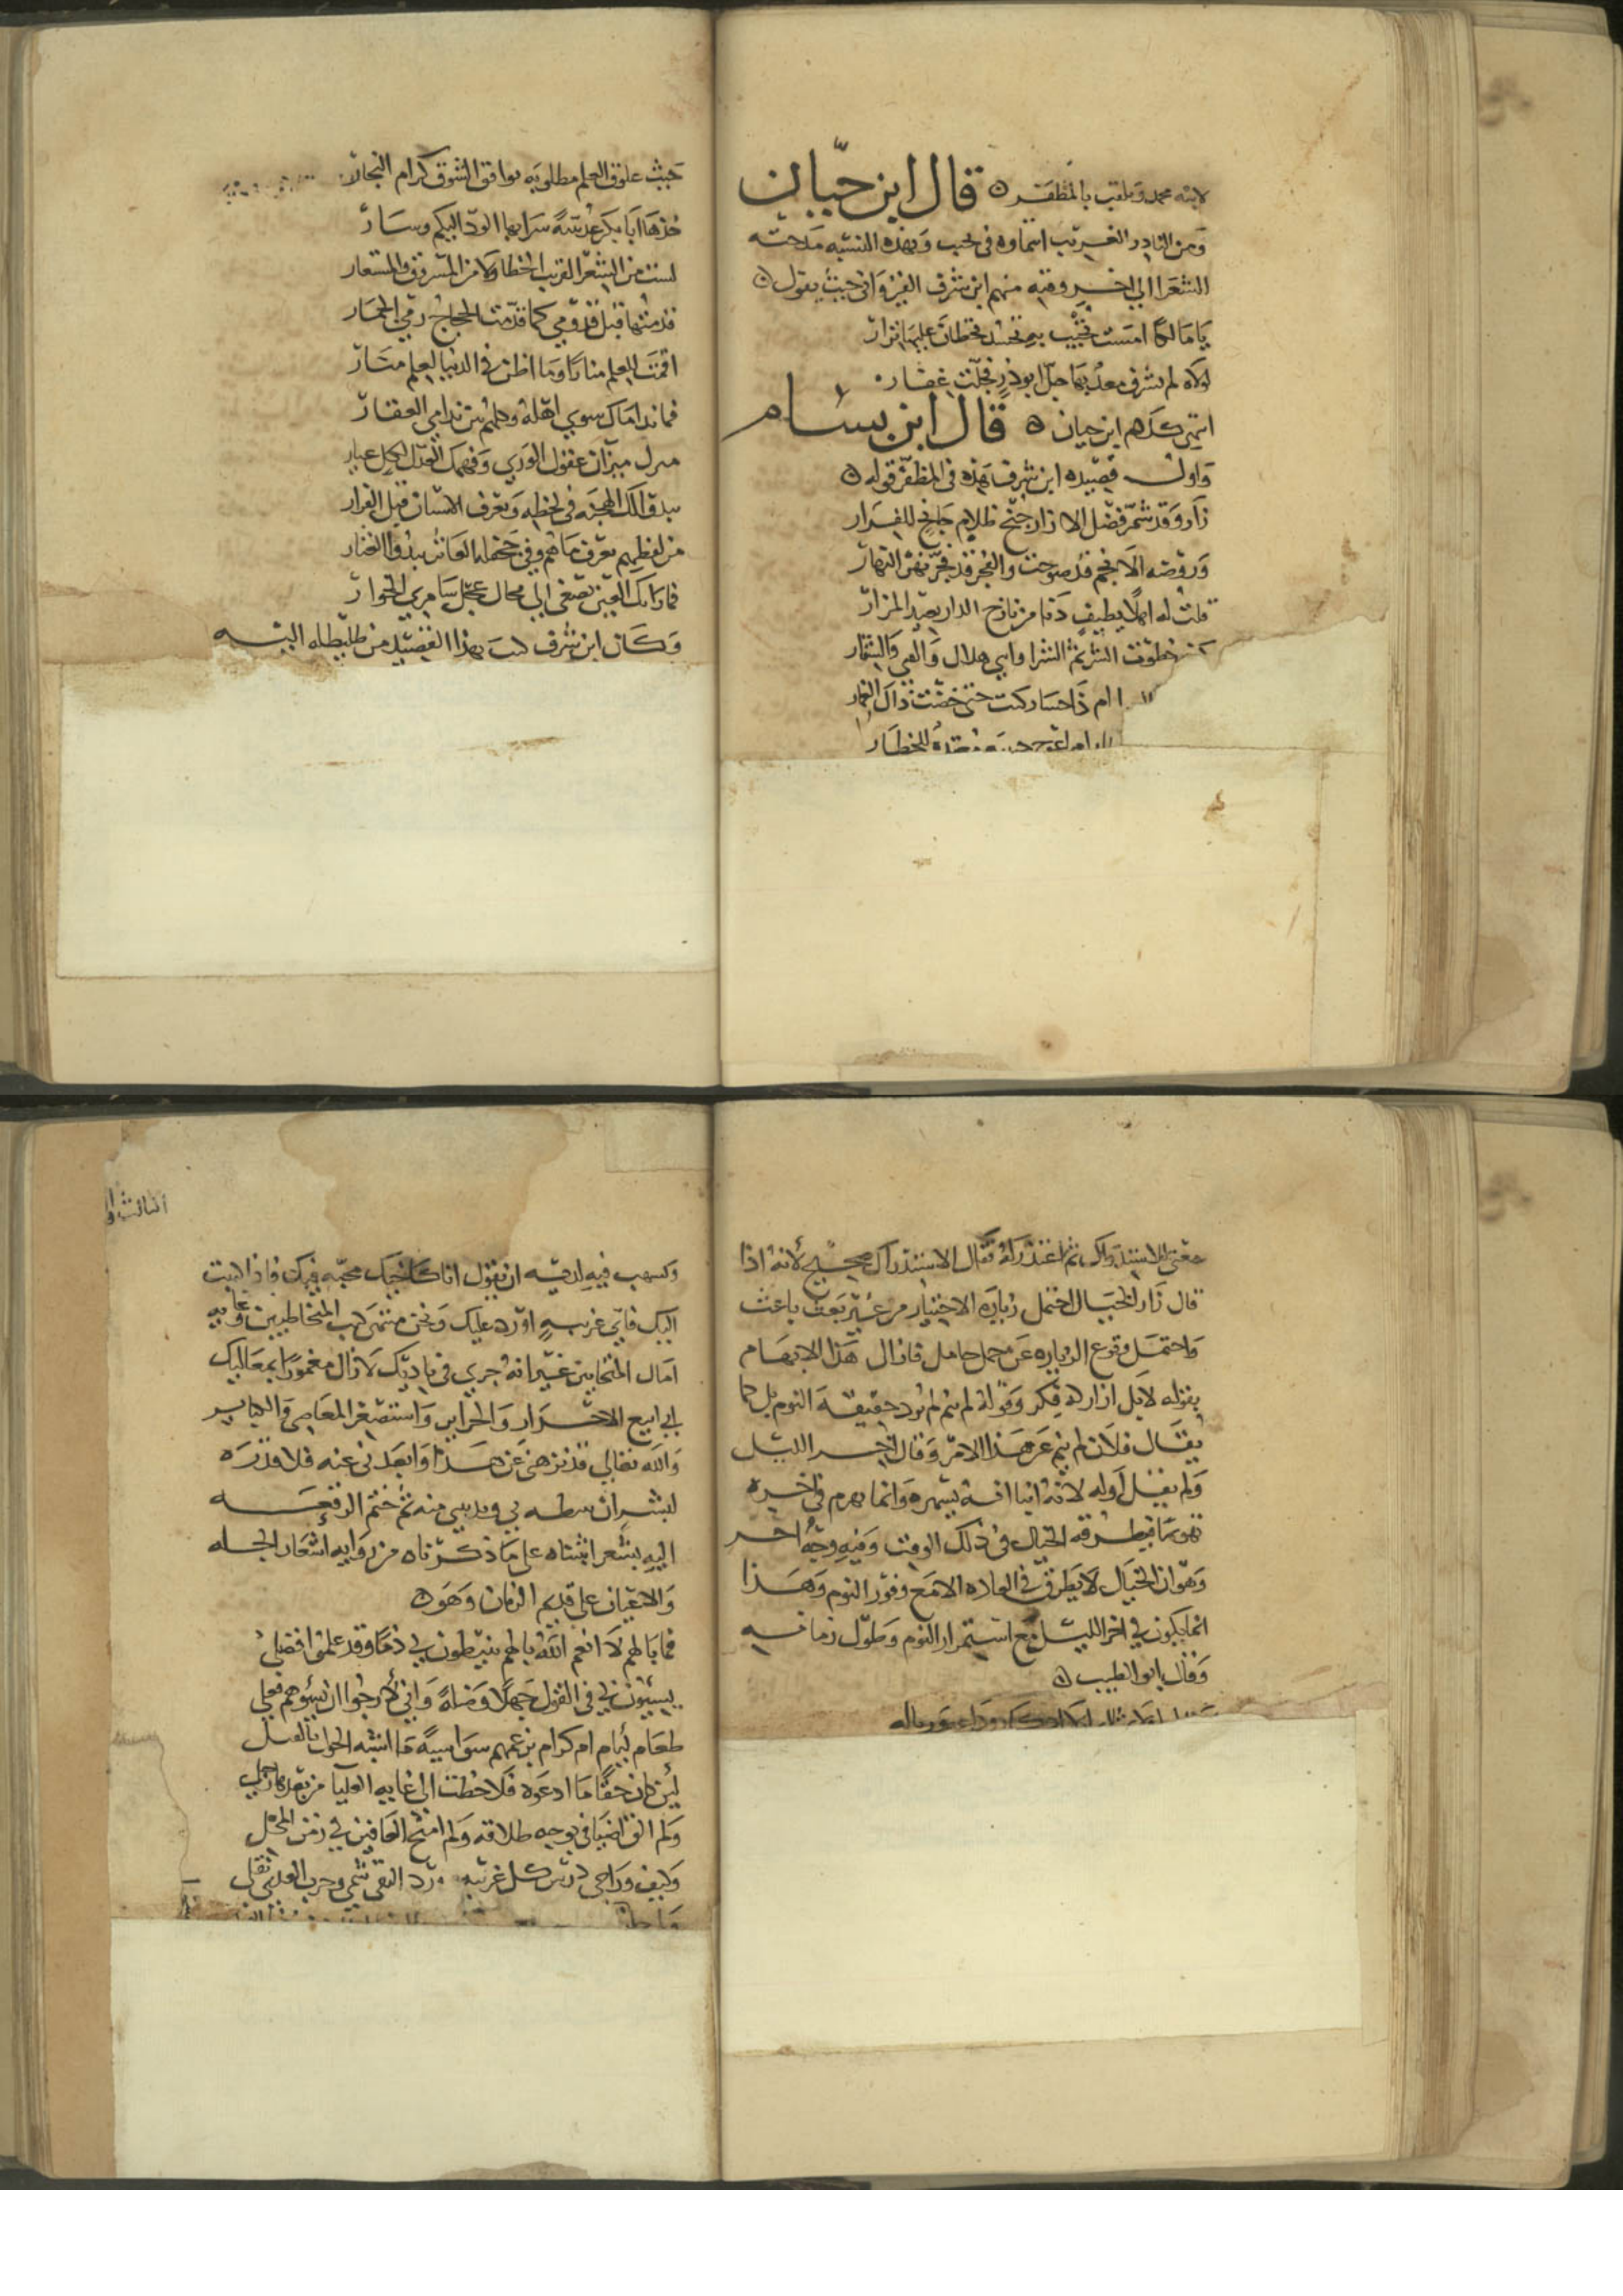 لابنه محمد وتلقب بالمظفر ٥ قال ابن حيان
ومن النادر الغريب انتماوه في تجيب وبهذه النسبه مدحته
الشعرا الى اخر وقته منهم ابن شرف القيرواني حيث يقول ٥
يا مالكا امست تجيب به تحسد قحطان عليها نزار
لولاه لم تشرف معد بها جل ابو ذر فجلت غفار
انتهى كلام ابن حيان ٥ قال ابن بسام
واول قصيده ابن شرف هذه في المظفر قوله ٥
زار وقد شمر فضل الازار جنح ظلام جانح للفرار
وروضه الانجم قد صوحت والفجر قد فجر نهر النهار
قلت له اهلا بطيف دنا من نازح الدار بعيد المزار
خطوت الشرا وابي هلال والفيافي والقفار
ام ذا حسا ركبت حتى خضت ذاك الغمار
للخطار
حيث علوق العلم مطلوبه توافق الشوق كرام النجار
خذها ابا بكر عدنية سرا بها الود اليكم وسار
لست من الشعر القريب الخطا ولا من المسروق والمستعار
قدمتها قبل قدومي كما قدمت الحجاج رمي الجمار
اقمت للعلم منارا وما اظن في الدنيا لعلم منار
فما نداماك سوى اهله وكلهم بين ندامى العقار
ميزان عقول الورى وفهمك العدل لكل عيار
يدق لك المهجه في لحظه وتعرف الانسان قبل الفرار
من لفظهم تعرف ما هم وفي جحفله العاثر يبدوا الغبار
فما راتك العين تصغى الى محال عجل سامري الخوار
وكان ابن شرف كتب بهذا القصيد من طليطله اليه
معنى الاستدراك ثم اعتذر له فقال الاستدراك صحيح لانه اذا
قال زار الخيال احتمل زياره الاختيار من غير بعث باعث
واحتمل وقوع الزياره عن محمل حامل فازال هذا الابهام
بقوله لا بل ازاره فكر وقوله لم ينم لم يرد حقيقه النوم بل كما
يقال فلان لم ينم عن هذا الامر وقال اخر الليل
ولم يقل اوله لانه انبا انه يسهره وانما يهوم في اخره
تهويما فيطرقه الخيال في ذلك الوقت وفيه وجه اخر
وهو ان الخيال لا يطرق في العاده الا مع وفور النوم وهذا
انما يكون في اخر الليل مع استمرار النوم وطول زمانه
وقال ابو الطيب ٥
وكسهب فيه لديه ان يقول انا كلخيك محبه فيك فاذا البت
اليك فاي غريبه اورد عليك ونحن منتهى كتب المخاطبين وغايه
امال المتحابين غير انه جرى في ناديك لا زال مغمورا بمعاليك
بابي ابيع الاحرار والحراير واستصغر المعاصي والكباير
والله تعالى قد نزهني عن هذا وابعدني عنه فلا قدره
لبشر ان بي ويديني منه ثم ختم الرقعه
اليه بشعر اثبتناه على ما ذكرناه من روايه اشعار الجله
والاعيان على قديم الزمان وهو ٥
فما بالهم لا انعم الله بالهم ينيطون بي ذما وقد علموا فضلي
يسيئون لي في القول جهلا وضله واني لارجوا ان يسؤهم فعلي
طغام لئام ام كرام بزعمهم سواسية ما اشبه الحول بالقبل
لئن كان حقا ما ادعوه فلا خطت الى غايه العليا من بعدها رجلي
ولم الق اضيافي بوجه طلاقه ولم امنح العافين في زمن المحل
وكيف وراحي درس كل غريبه ورد التقى شمي وحرب العدى نقلي